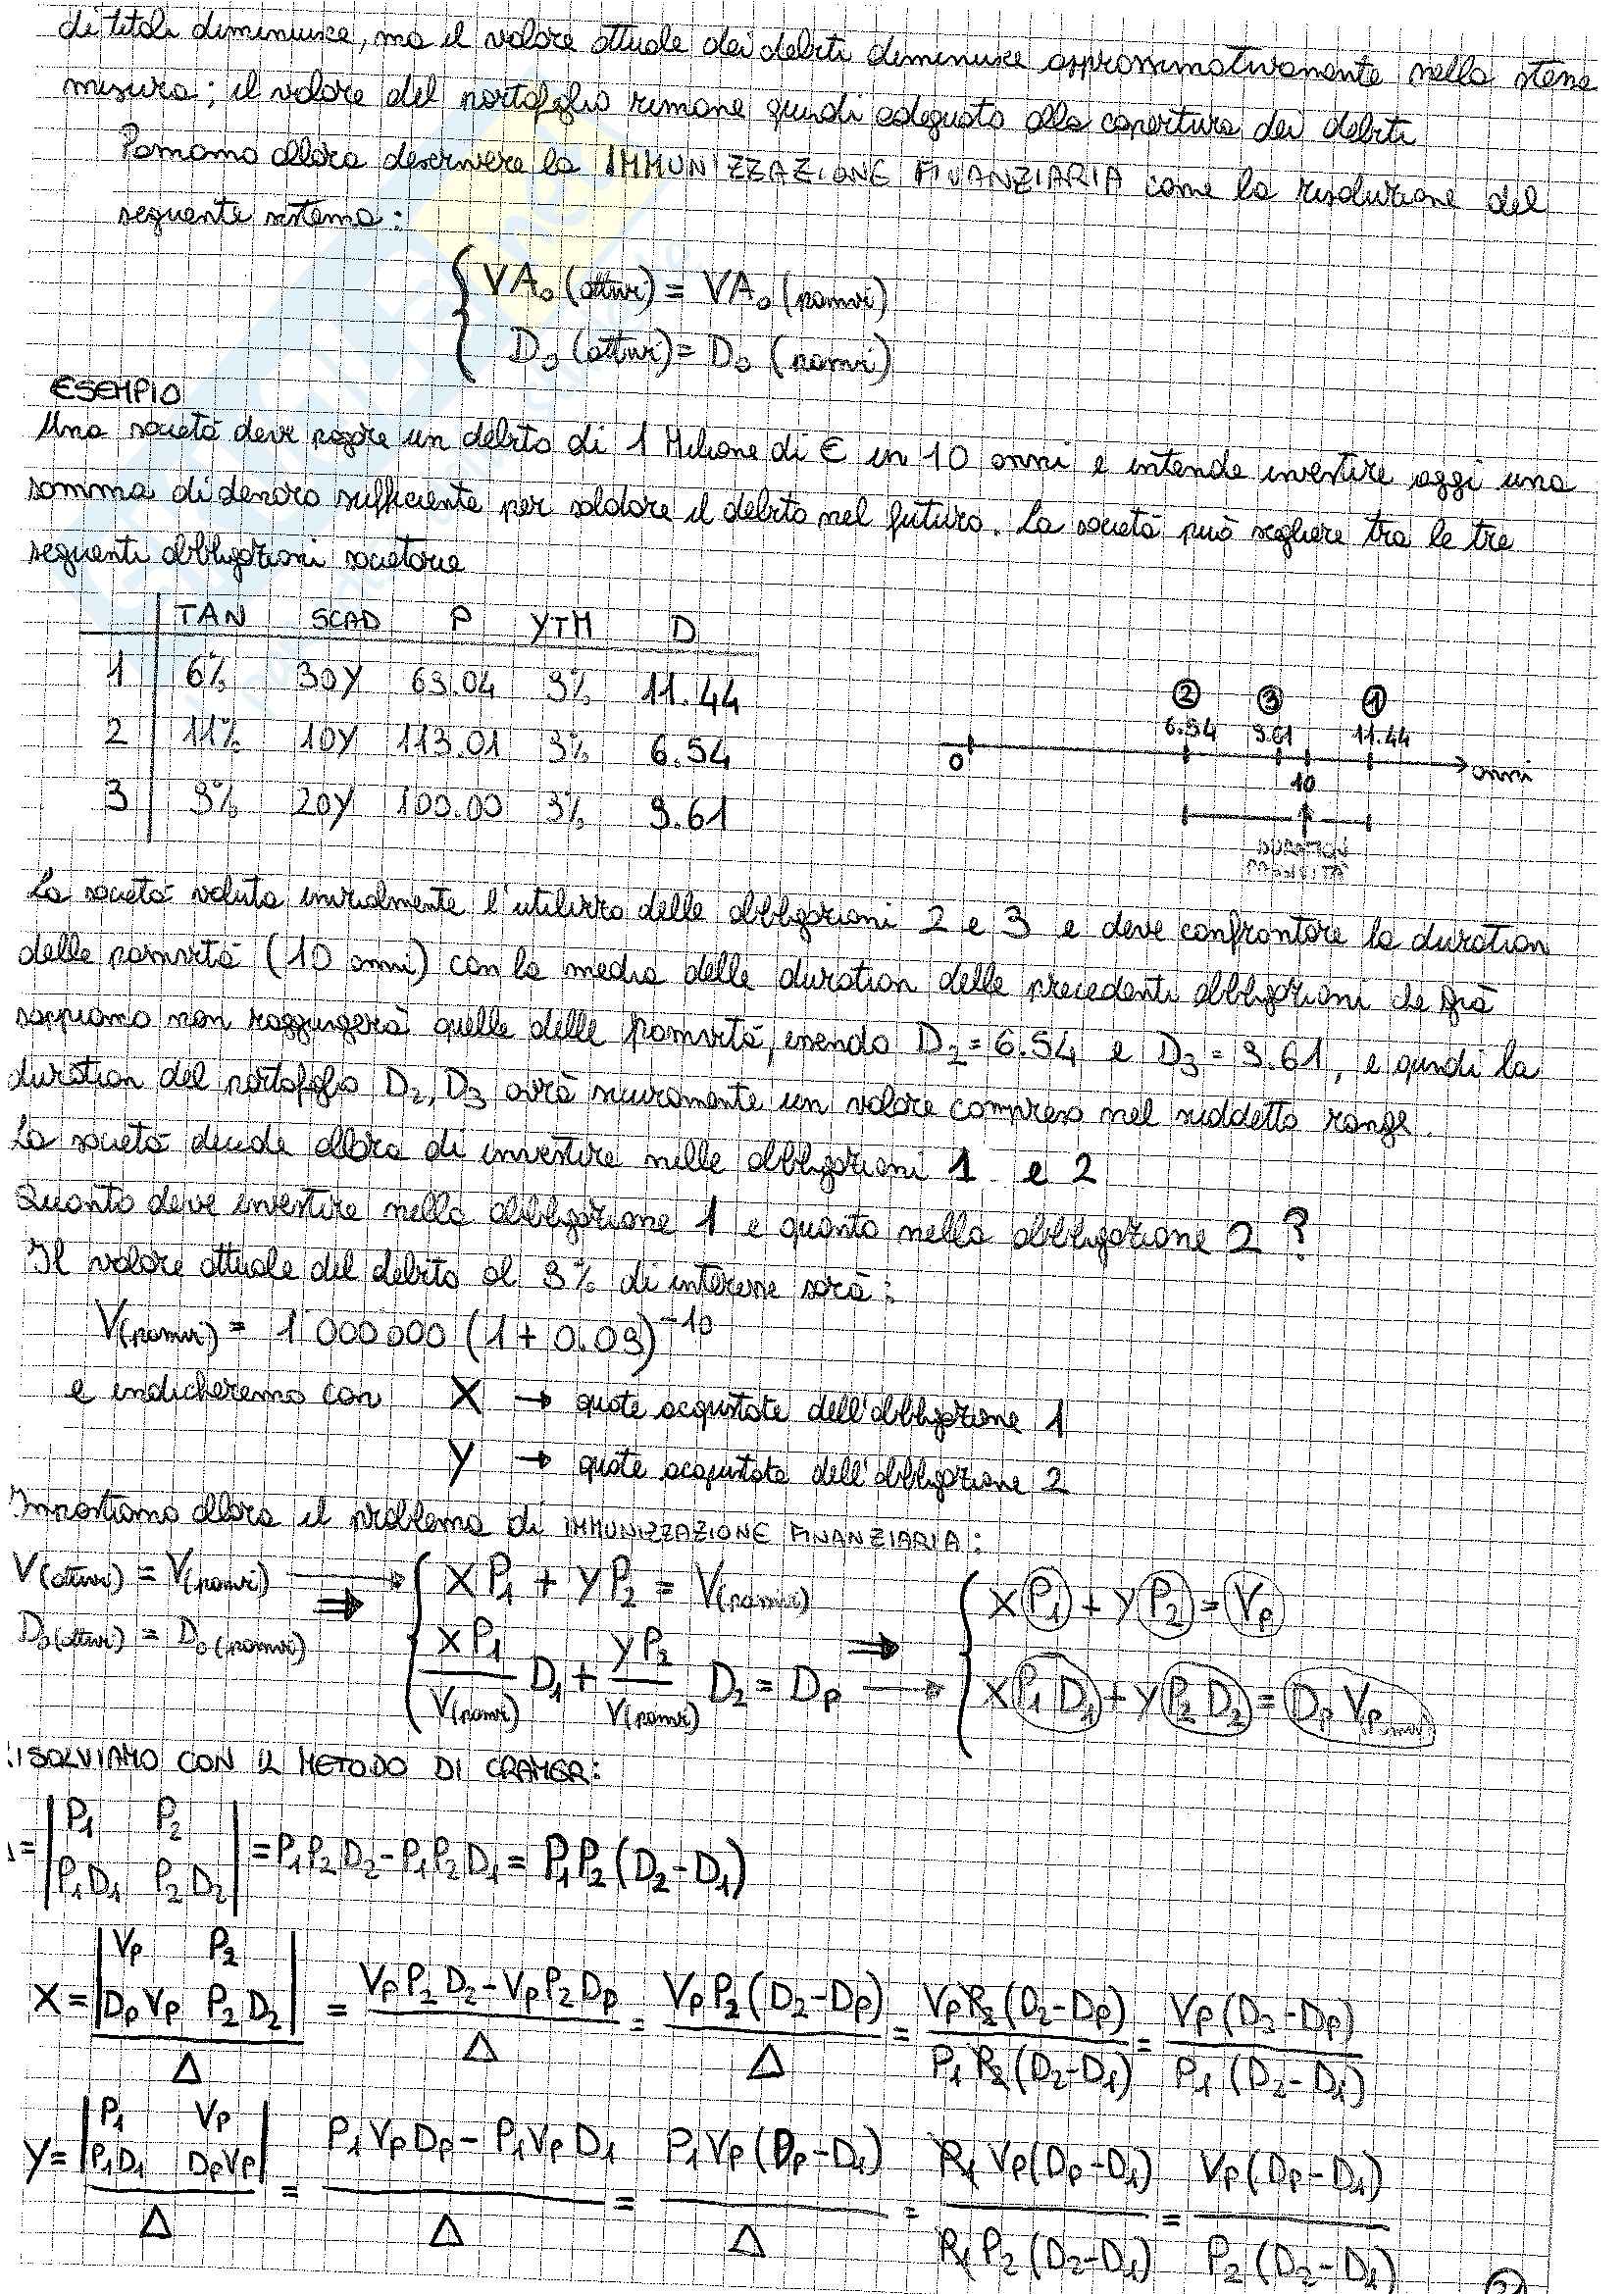 di titoli diminuisce, ma il valore attuale dei debiti diminuisce approssimativamente nella stessa
misura; il valore del portafoglio rimane quindi adeguato alla copertura dei debiti
Possiamo allora descrivere la IMMUNIZZAZIONE FINANZIARIA come la risoluzione del
seguente sistema:
VA₀ (attivi) = VA₀ (passivi)
D₀ (attivi) = D₀ (passivi)
ESEMPIO
Una società deve pagare un debito di 1 Milione di € in 10 anni e intende investire oggi una
somma di denaro sufficiente per saldare il debito nel futuro. La società può scegliere tra le tre
seguenti obbligazioni societarie
TAN SCAD P YTM D
1 6% 30Y 69.04 9% 11.44
2 11% 10Y 113.01 9% 6.54
3 9% 20Y 100.00 9% 9.61
② ③ ①
6.54 9.61 11.44
0 10 anni
DURATION
PASSIVITÀ
La società valuta inizialmente l'utilizzo delle obbligazioni 2 e 3 e deve confrontare la duration
delle passività (10 anni) con la media delle duration delle precedenti obbligazioni che già
sappiamo non raggiungerà quelle delle passività, essendo D₂ = 6.54 e D₃ = 9.61, e quindi la
duration del portafoglio D₂, D₃ avrà sicuramente un valore compreso nel suddetto range.
La società decide allora di investire nelle obbligazioni 1 e 2
Quanto deve investire nella obbligazione 1 e quanto nella obbligazione 2 ?
Il valore attuale del debito al 9% di interesse sarà:
V(passivi) = 1 000 000 (1 + 0.09)⁻¹⁰
e indicheremo con X → quote acquistate dell'obbligazione 1
Y → quote acquistate dell'obbligazione 2
Impostiamo allora il problema di IMMUNIZZAZIONE FINANZIARIA:
V(attivi) = V(passivi) ⇒ XP₁ + YP₂ = V(passivi) ⇒ X P₁ + Y P₂ = Vp
D₀(attivi) = D₀(passivi) XP₁/V(passivi) D₁ + YP₂/V(passivi) D₂ = Dp → X P₁ D₁ + Y P₂ D₂ = Dp Vp
RISOLVIAMO CON IL METODO DI CRAMER:
Δ = |P₁ P₂
P₁D₁ P₂D₂| = P₁P₂D₂ - P₁P₂D₁ = P₁P₂(D₂-D₁)
X = |Vp P₂
DpVp P₂D₂| / Δ = VpP₂D₂ - VpP₂Dp / Δ = VpP₂(D₂-Dp) / Δ = VpP₂(D₂-Dp) / P₁P₂(D₂-D₁) = Vp(D₂-Dp) / P₁(D₂-D₁)
Y = |P₁ Vp
P₁D₁ DpVp| / Δ = P₁VpDp - P₁VpD₁ / Δ = P₁Vp(Dp-D₁) / Δ = P₁Vp(Dp-D₁) / P₁P₂(D₂-D₁) = Vp(Dp-D₁) / P₂(D₂-D₁)